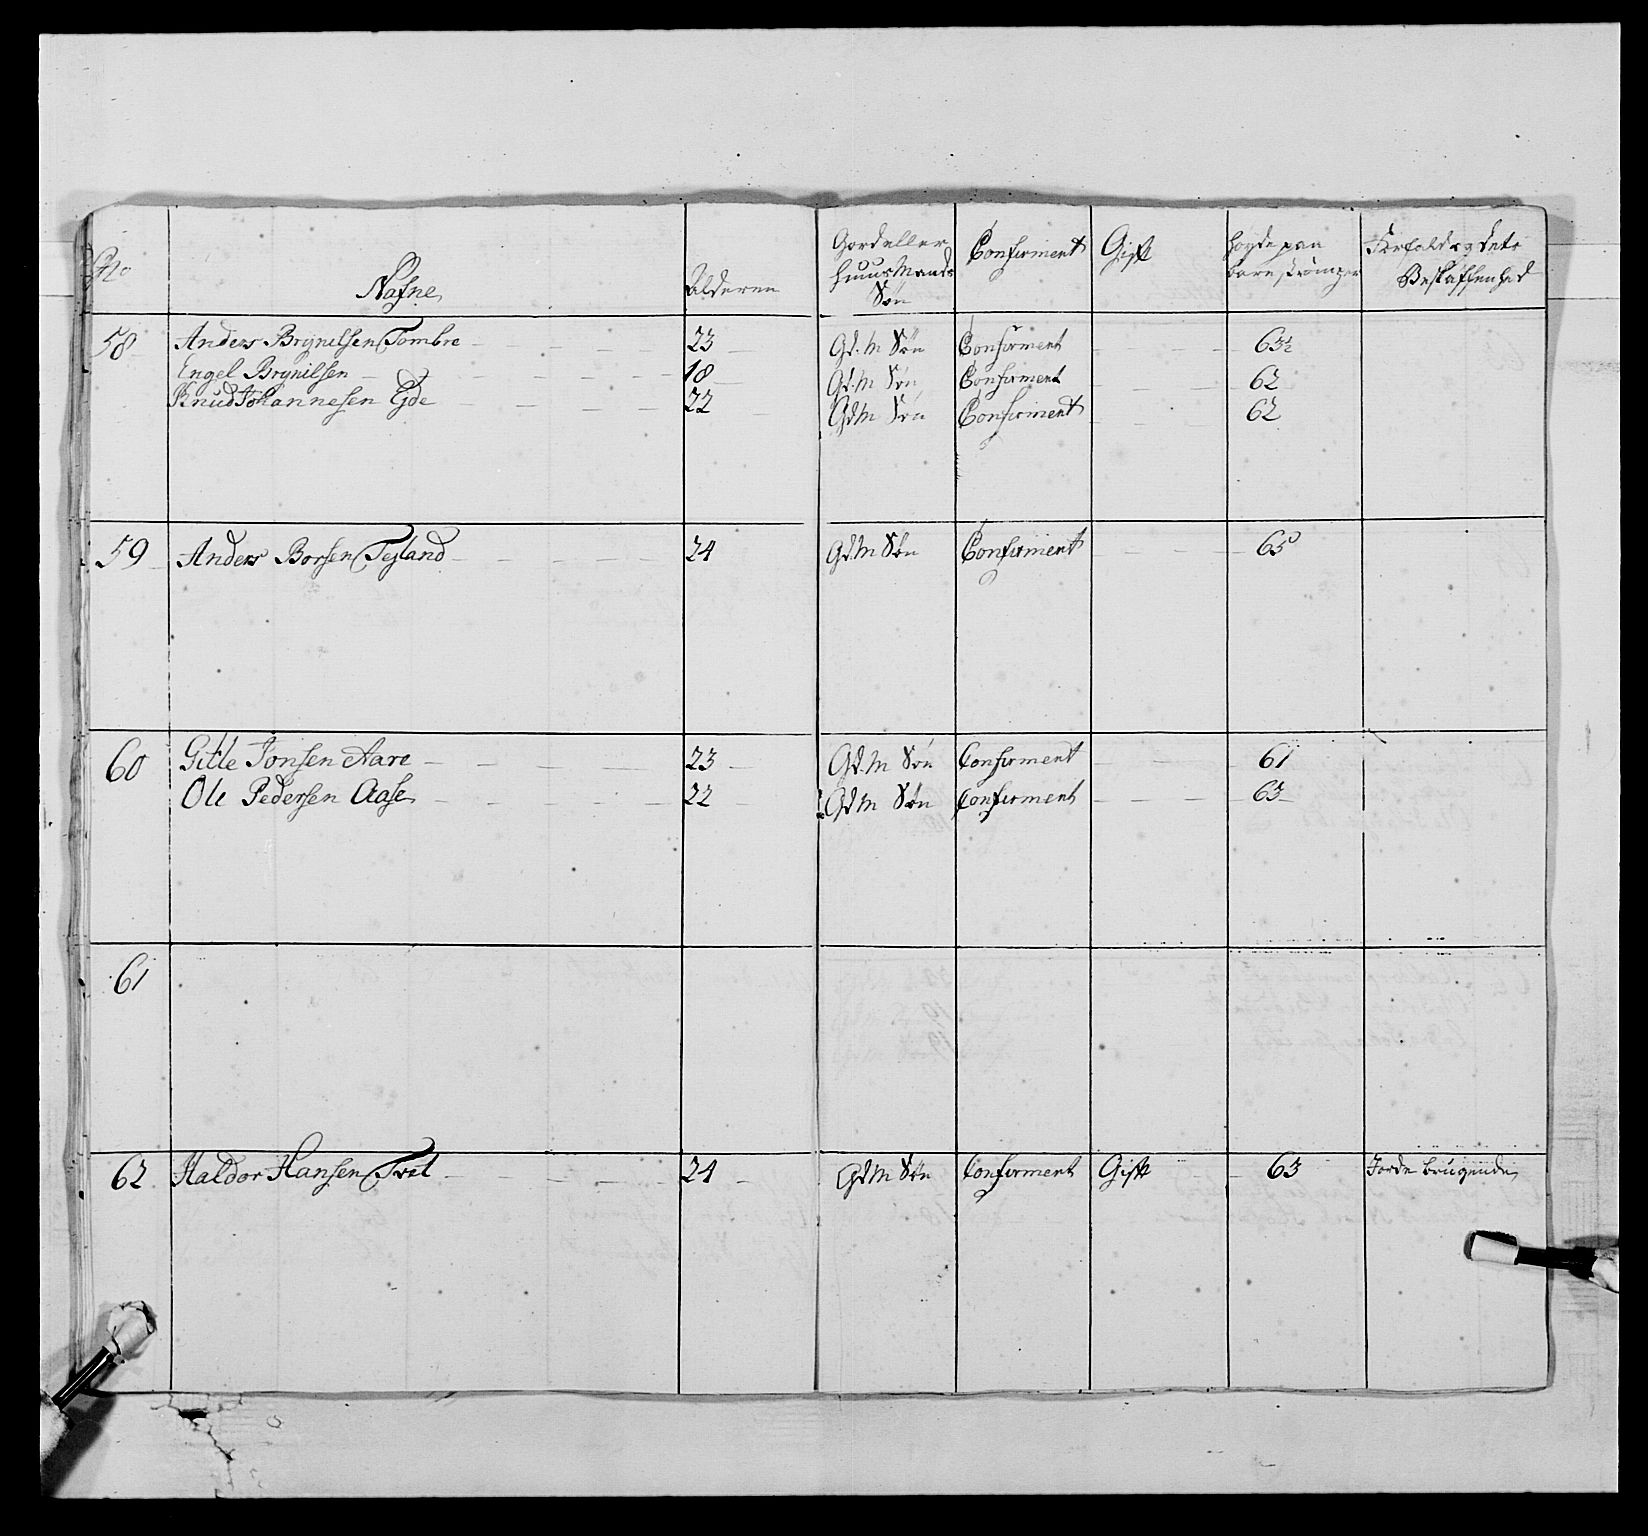 No Nafne Alderen Gord eller huus Mands Søn Confirment Gift høyde paa bare strømper Forfald og dets Beskaffenhed
58 Anders Brynilsen Tombre 23 Gd. M Søn Confirment 63½
Engel Brynilsen 18 Gd. M Søn Confirment 62
Knud Johannesen Eide 22 Gd M Søn Confirment 62
59 Anders Borsen Tesland 24 Gd. M Søn Confirment 65
60 Gitle Jonsen Aare 23 Gd. M Søn Confirment 61
Ole Pedersen Aase 22 Gd M Søn Confirment 63
61
62 Haldor Hansen Tvet 24 Gd M Søn Confirment Gift 63 Jorde brugende